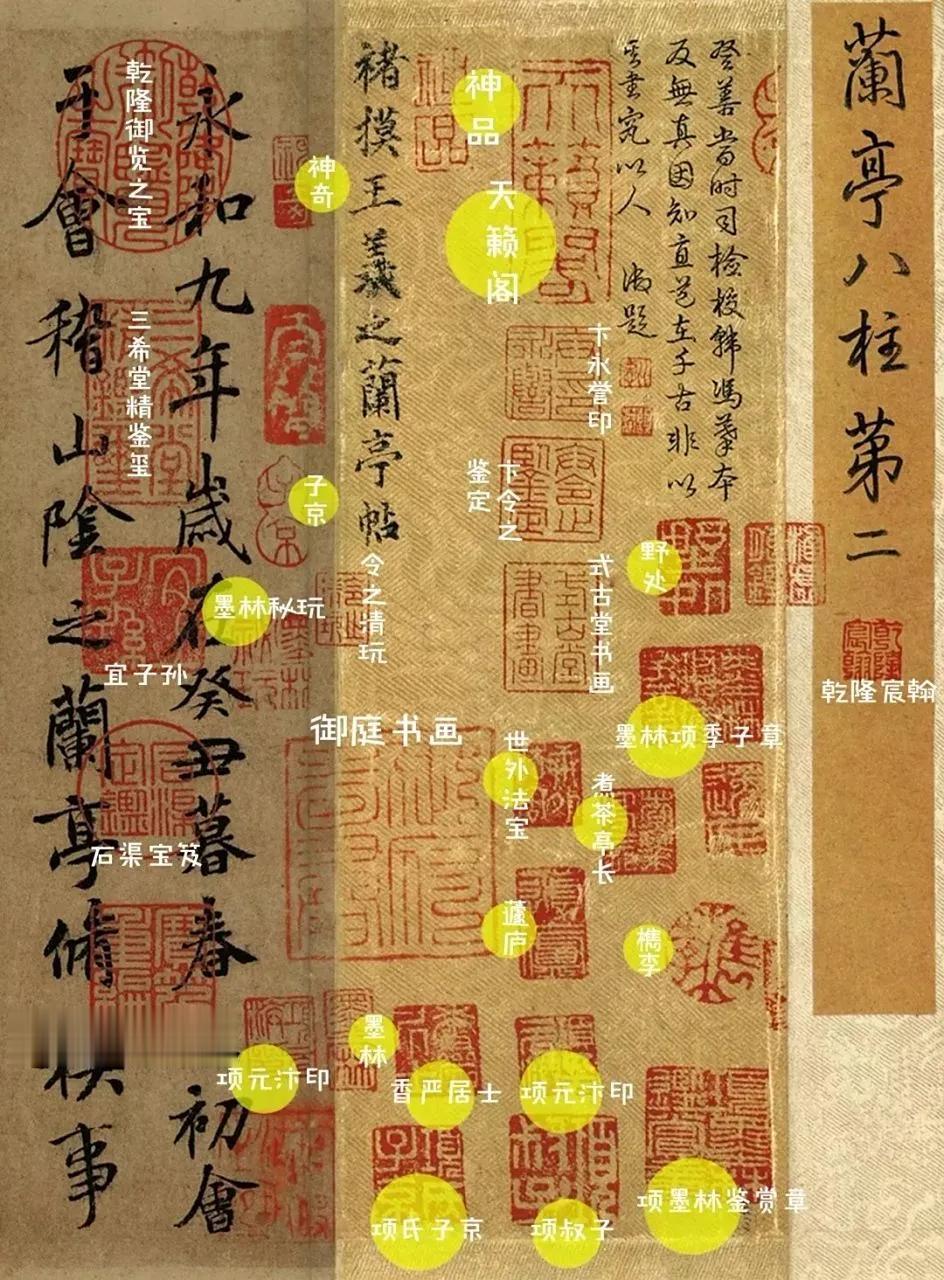 蘭亭八柱第二
乾隆宸翰
登善當时司检校韩馮摹本
反無真因知直道在千古非以
其書究以人 御題
神品
天籁阁
卞永誉印
卞令之
鉴定
式古堂书画
野处
墨林项季子章
世外法宝
煮茶亭长
蘧庐
檇李
项元汴印
项叔子
项墨林鉴赏章
褚摸王羲之蘭亭帖
令之清玩
御庭书画
墨林
香严居士
项氏子京
神奇
子京
墨林秘玩
项元汴印
永和九年歲在癸丑暮春
初會
乾隆御览之宝
三希堂精鉴玺
宜子孙
石渠宝笈
于會稽山陰之蘭亭脩禊事